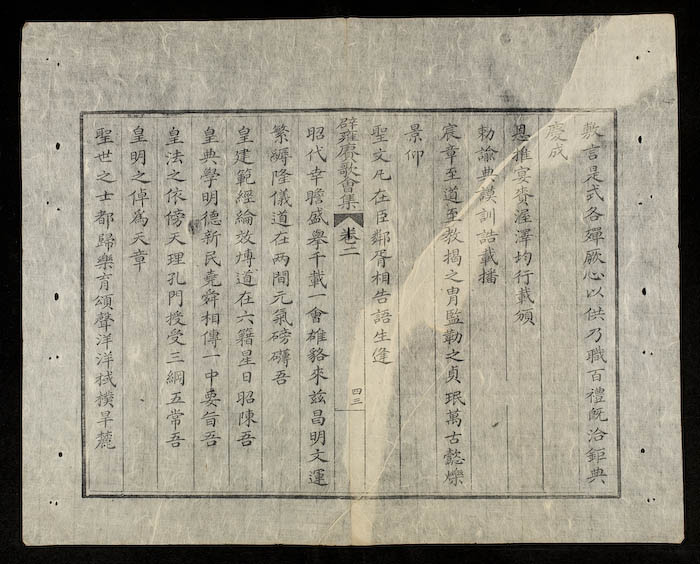 敷言是式各殫厥心以供乃職百禮旣洽鉅典
慶成
恩推宴賚渥澤均行載頒
勅諭典謨訓誥載播
宸章至道至教揭之胄監勒之貞珉萬古懿爍
景仰
聖文凡在臣鄰胥相告語生逢
辟雍賡歌會集
卷二
四三
昭代幸瞻盛舉千載一會雄貉來兹昌明文運
繁褥隆儀道在两間元氣磅礴吾
皇建範經綸效慱道在六籍星日昭陳吾
皇典學明德新民堯舜相傳一中要旨吾
皇法之依傍天理孔門授受三綱五常吾
皇明之倬為天章
聖世之士都歸樂育頌聲洋洋棫樸旱麓